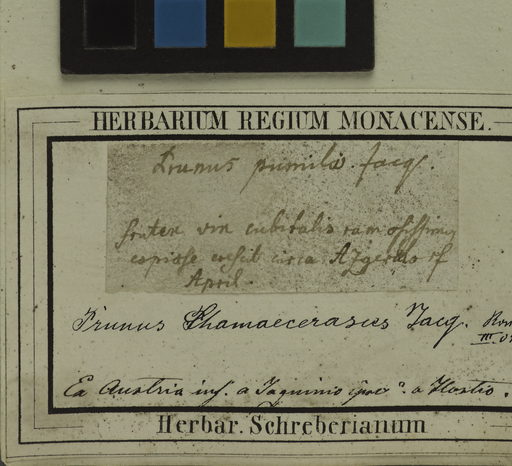 HERBARIUM REGIUM MONACENSE.
Prunus pumila. Jacq.
frutex vix cubitalis ramosissimg
copiose crescit circa Azgersdorf
April.
Prunus Chamaecerasus Jacq.
III.
Ex Austria inf. a Jaquinio a Hostio.
Herbar. Schreberianum